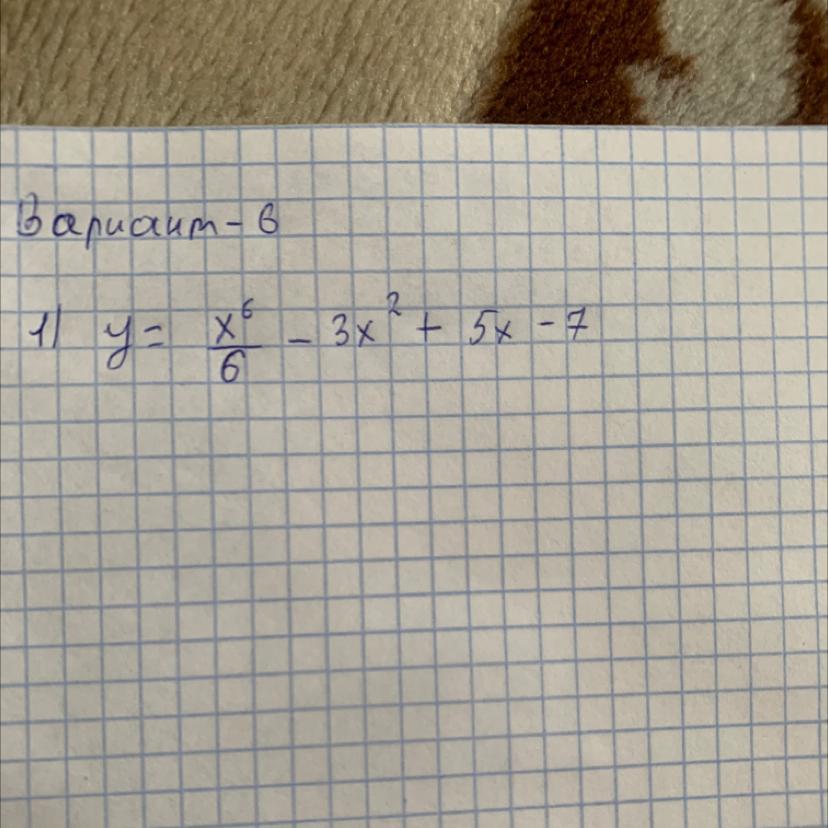 Вариант - 6
1) y = x⁶/6 - 3x² + 5x - 7